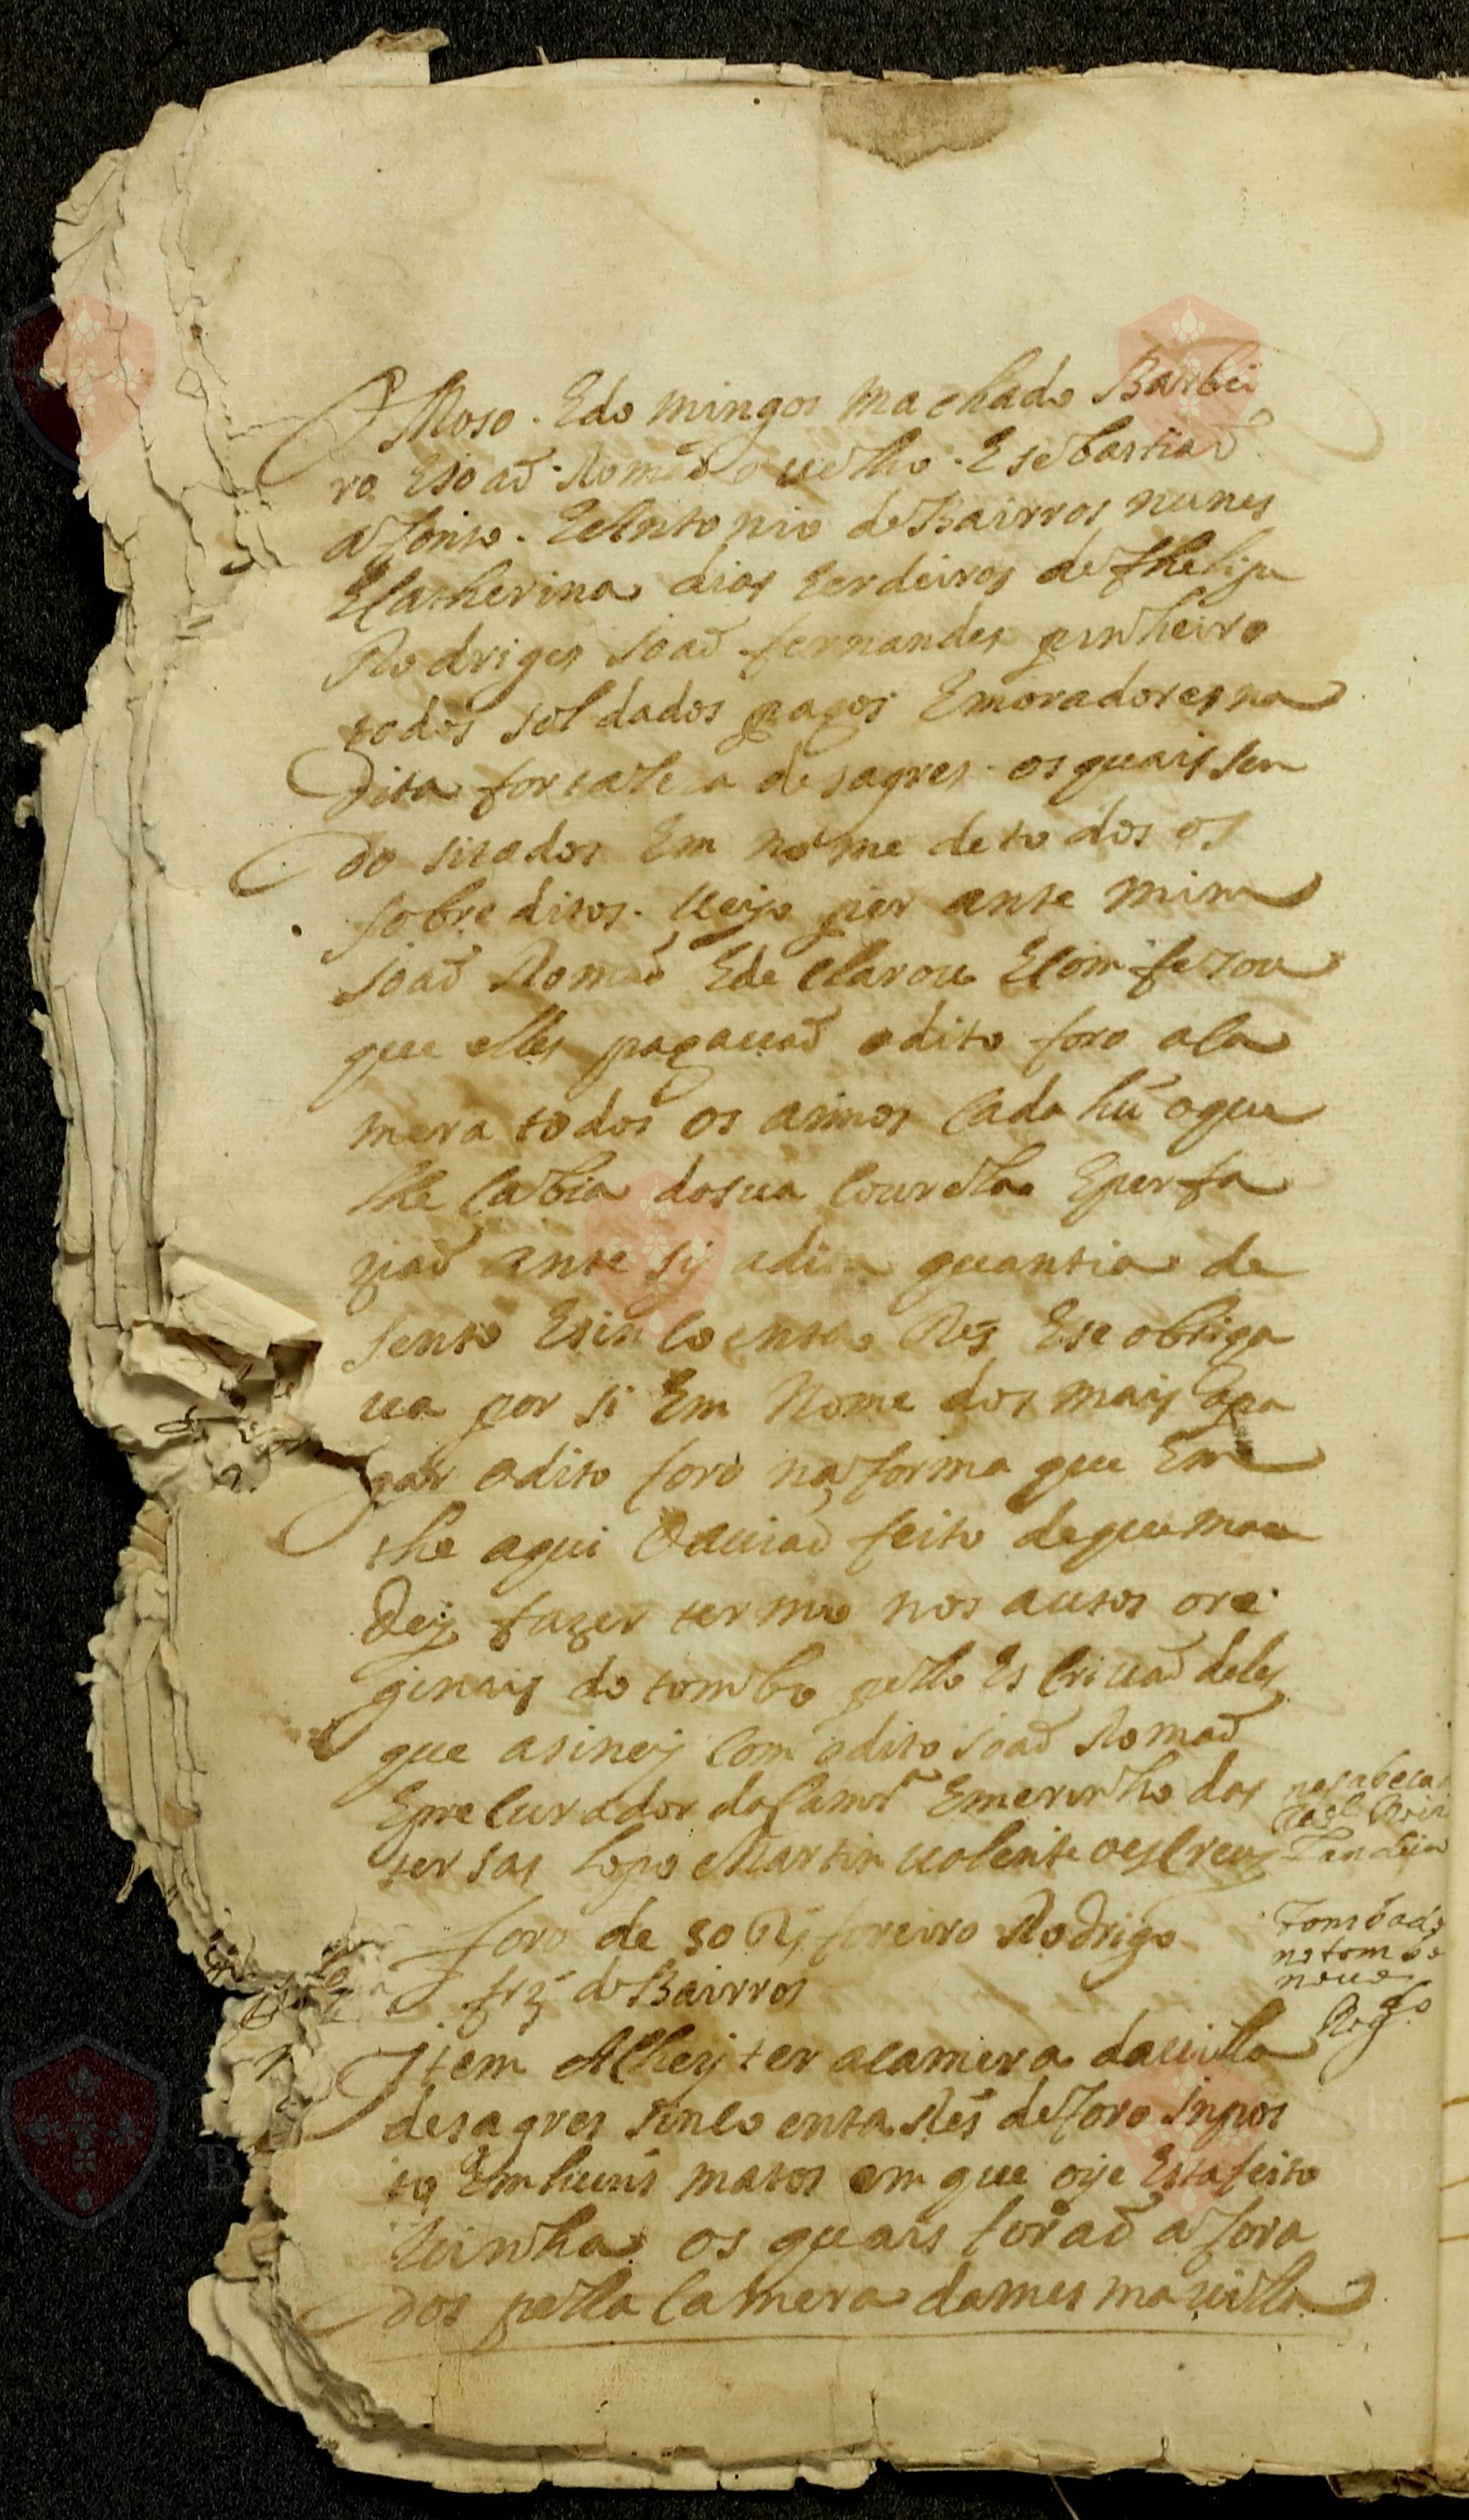 Moso. E do mingos machado Barbei
ro E Joaõ Romaõ o uelho. E sebastiaõ
afonso. E Antonio de Bairros nunes
E Catherina dias Erdeiros de fhelipe
Rodriges Joaõ fernandes pinheiro
todos soldados pagos E moradores na
dita fortaleza de sagres. os quais sen
do sitados Em nome de to dos os
sobre ditos. Ueyo per ante mim
Joaõ Romaõ E de Clarou E Com fesou
que elles pagauaõ o dito foro a Ca
mera todos os annos Cada hũ o que
lhe Cabia da sua Courella E per fa
ziaõ antre sy a dita quantia de
sento E sin Co enta Rẽs E se obriga
ua por si Em Nome dos mais a pa
gar o dito foro na forma que Em
the aqui o auiaõ feito de que man
dey fazer termo nos autos ore
ginais do tombo pello Es Criuaõ deles
que asiney Com o dito Joaõ Romaõ
E pro Curador da Camrª E meirinho das
tersas Lopo Martin ualente o esCreuy
foro de 50 Rs foreiro Rodrigo
frz de Bairros
Item Achey ter a camera da uilla
de sagres sinco enta Rẽs de foro Inpos
to Em huns matos em que oije Esta feito
uinha os quais foraõ a fora
dos pella Camera da mes ma uilla
Tombado
no tombo
nouo